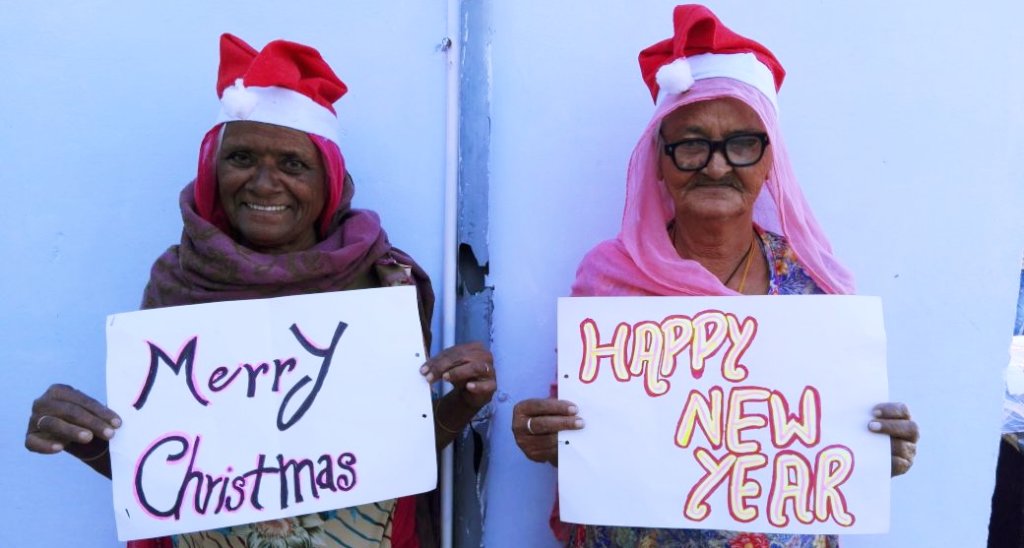 Merry
Christmas
HAPPY
NEW
YEAR